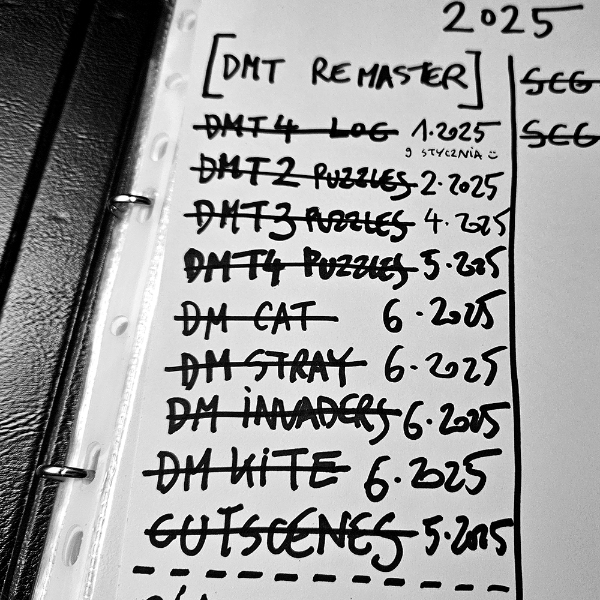 2025
[DMT REMASTER]
DMT4 LOG 1.2025
9 STYCZNIA
DMT2 PUZZLES 2.2025
DMT3 PUZZLES 4.2025
DMT4 PUZZLES 5.2025
DM CAT 6.2025
DM STRAY 6.2025
DM INVADERS 6.2025
DM KITE 6.2025
CUTSCENES 5.2025
SCG
SCG